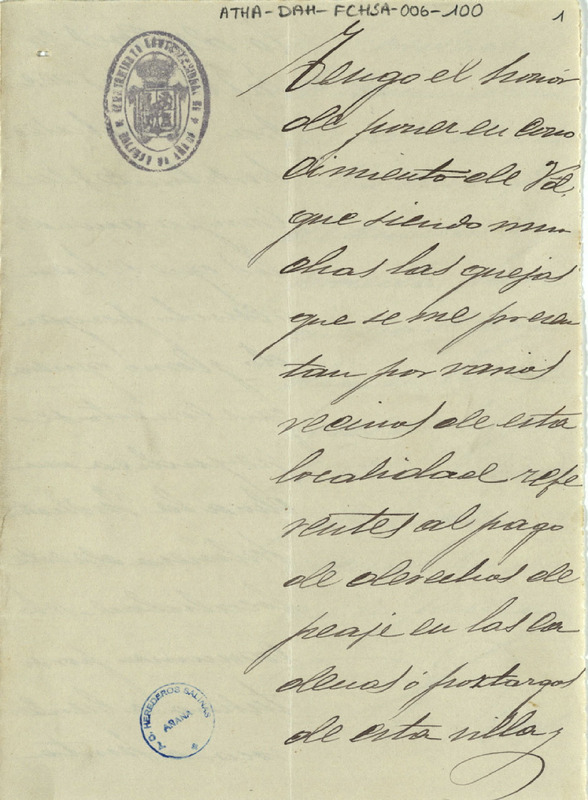 ATHA-DAH-FCHSA-006-100
1
Tengo el honor
de poner en cono
cimiento de Vd.
que siendo mu
chas las quejas
que se me presen
tan por varios
vecinos de esta
localidad refe
rentes al pago
de derechos de
peaje en las ca
denas ó portazgos
de esta villa,
HEREDEROS SALINAS
AÑANA